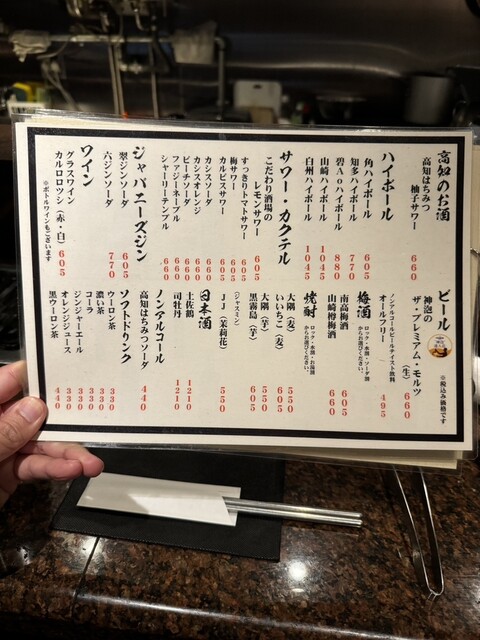 高知のお酒
高知はちみつ
柚子サワー 660
ハイボール
角ハイボール 605
知多ハイボール 770
碧Aoハイボール 880
山崎ハイボール 1045
白州ハイボール 1045
サワー・カクテル
こだわり酒場の
レモンサワー 605
すっきりトマトサワー 605
梅サワー 605
カルピスサワー 605
カシスソーダ 660
カシスオレンジ 660
ピーチソーダ 660
ファジーネーブル 660
シャーリーテンプル 660
ジャパニーズジン
翠ジンソーダ 605
六ジンソーダ 770
ワイン
グラスワイン
カルロロッシ（赤・白） 605
※ボトルワインもございます
ビール
※税込み価格です
神泡の
ザ・プレミアム・モルツ（生） 660
ノンアルコールビールテイスト飲料
オールフリー 495
梅酒
ロック・水割・ソーダ割
からお選びください。
南高梅酒 605
山崎樽梅酒 660
焼酎
ロック・水割・お湯割
からお選びください。
大隅（麦） 550
いいちこ（麦） 605
大隅（芋） 550
黒霧島（芋） 605
（ジャスミン）
JJ（茉莉花） 550
日本酒
土佐鶴 1210
司牡丹 1210
ノンアルコール
高知はちみつソーダ 440
ソフトドリンク
ウーロン茶 330
濃い茶 330
コーラ 330
ジンジャーエール 330
オレンジジュース 330
黒ウーロン茶 440